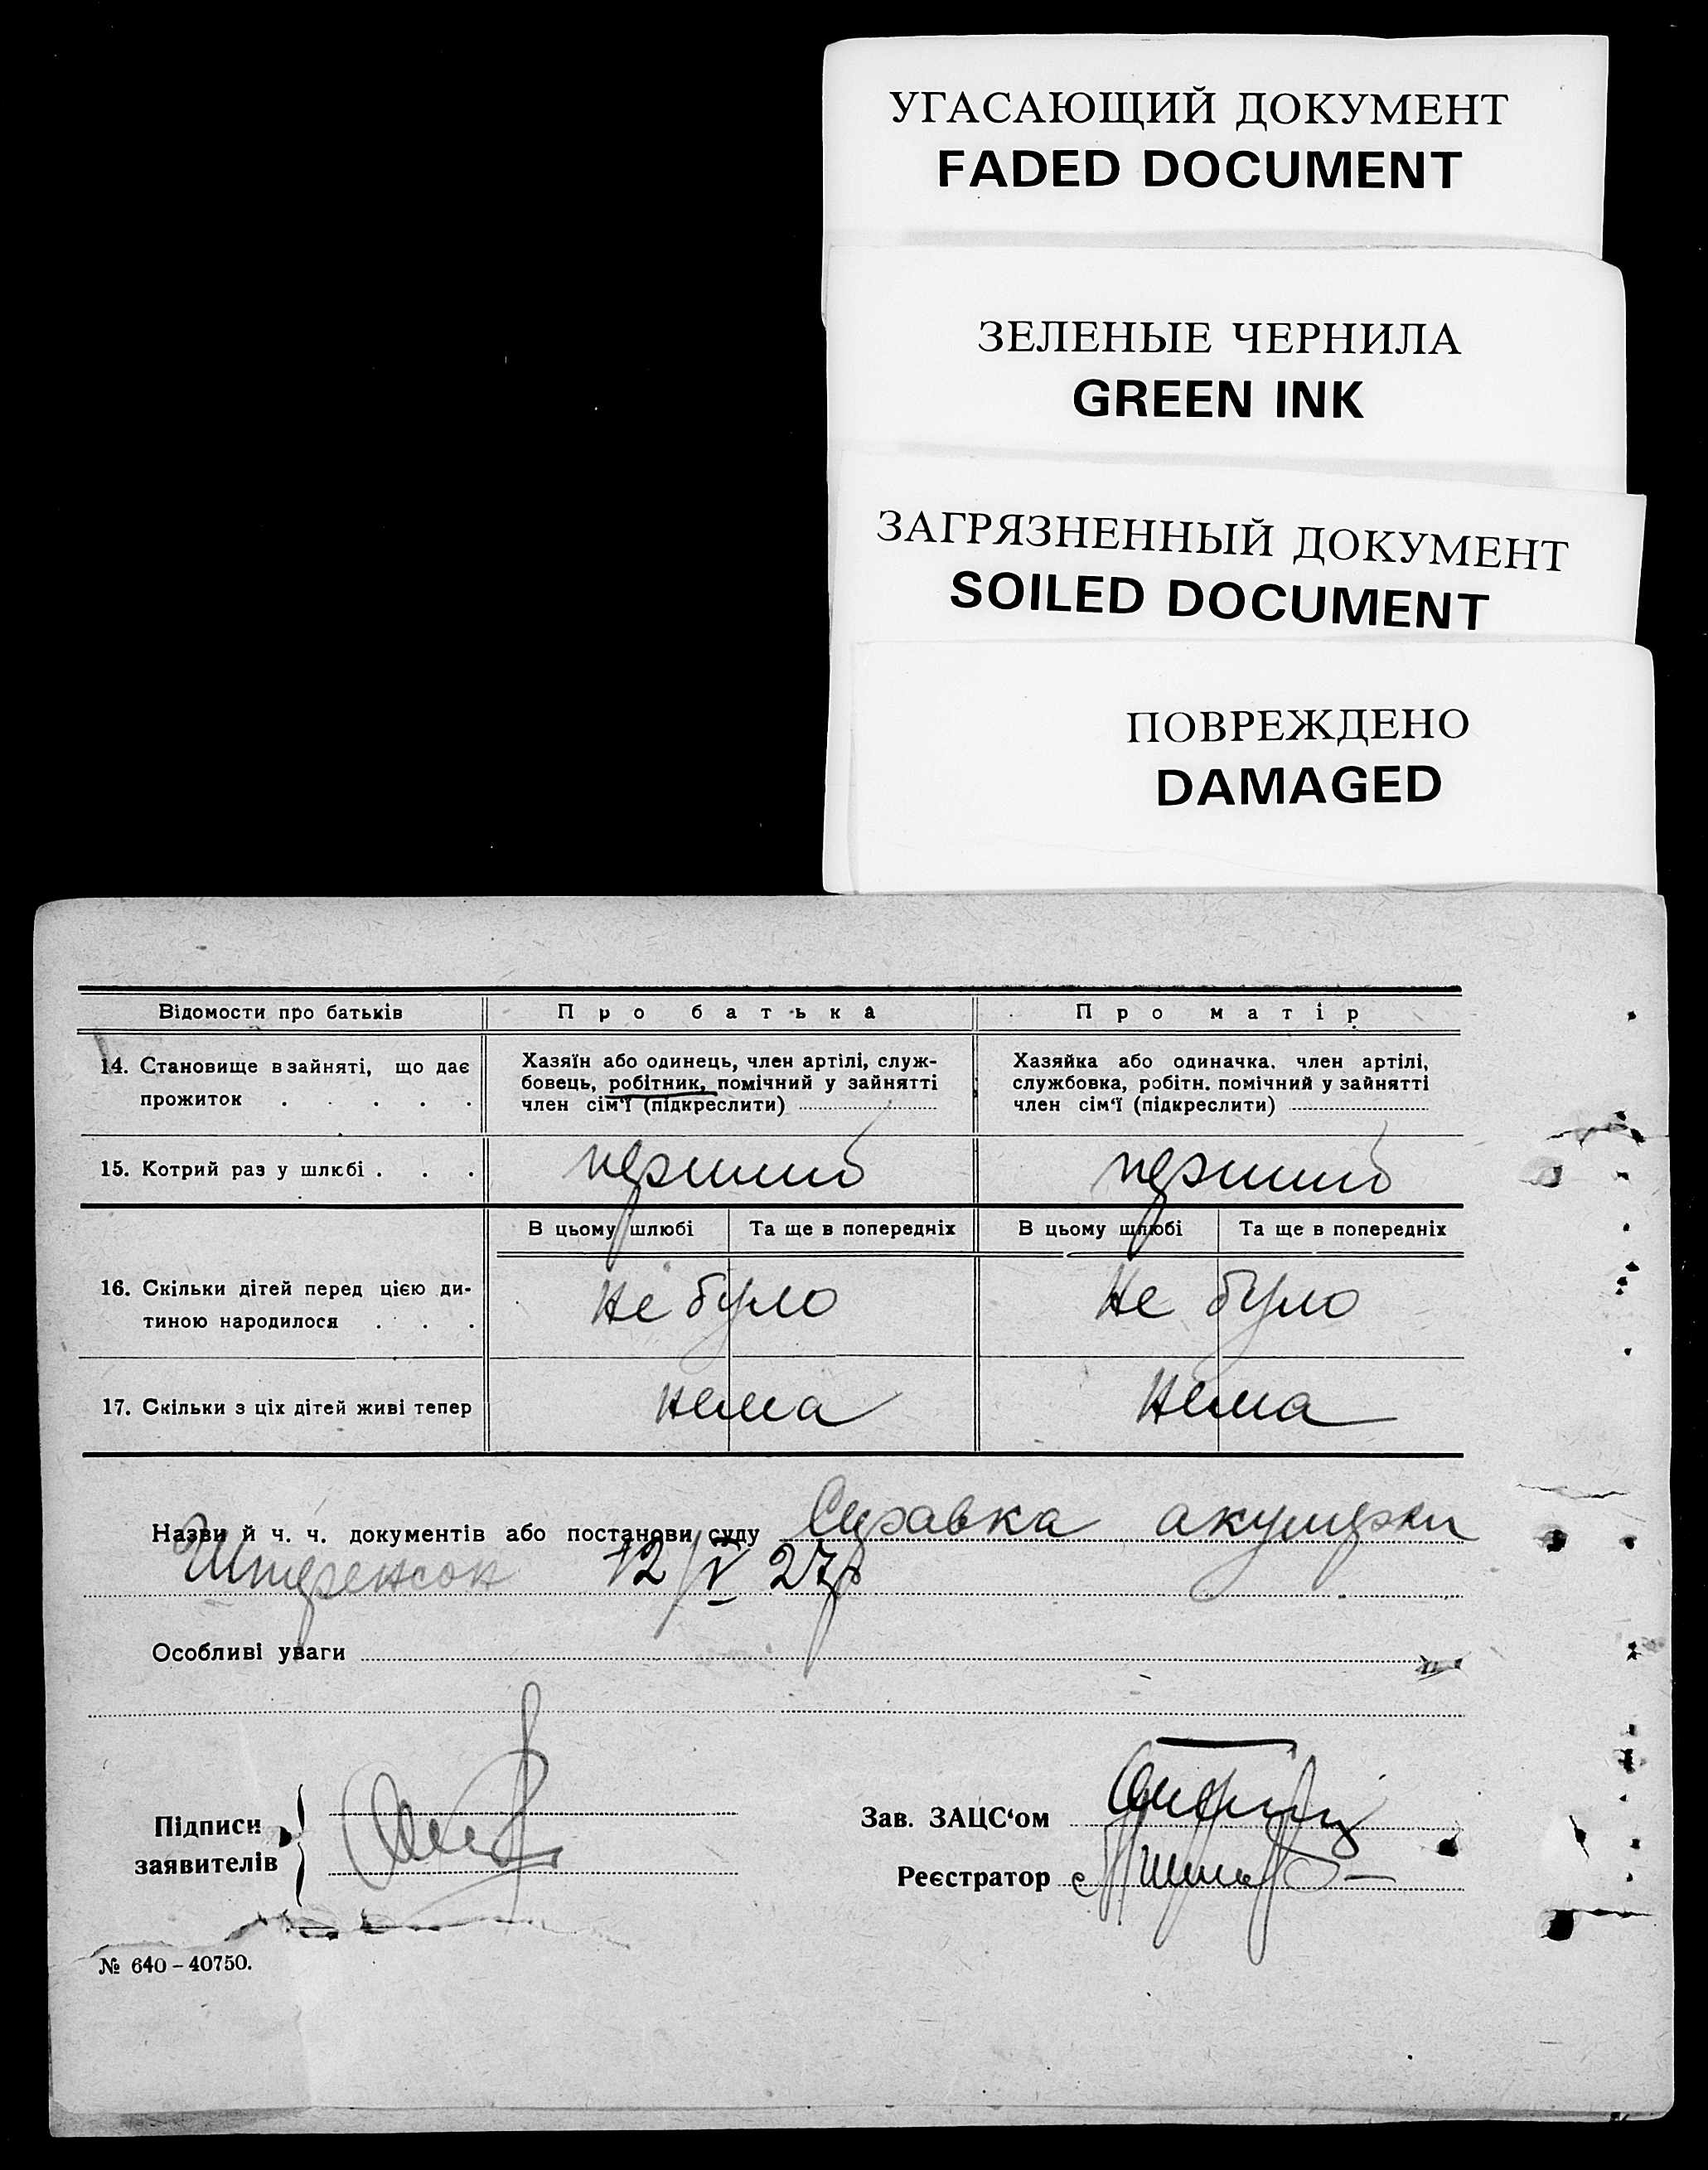 УГАСАЮЩИЙ ДОКУМЕНТ
FADED DOCUMENT
ЗЕЛЕНЫЕ ЧЕРНИЛА
GREEN INK
ЗАГРЯЗНЕННЫЙ ДОКУМЕНТ
SOILED DOCUMENT
ПОВРЕЖДЕНО
DAMAGED
Відомости про батьків
Про батька
Про матір
14. Становище в зайняті, що дає
прожиток . . . . .
Хазяїн або одинець, член артілі, служ-
бовець, робітник, помічний у зайнятті
член сім'ї (підкреслити)
Хазяйка або одиначка, член артілі,
службовка, робітн. помічний у зайнятті
член сім'ї (підкреслити)
15. Котрий раз у шлюбі . . .
перший
перший
В цьому шлюбі
Та ще в попередніх
В цьому шлюбі
Та ще в попередніх
16. Скільки дітей перед цією ди-
тиною народилося . . .
не було
не було
17. Скільки з ціх дітей живі тепер
нема
нема
Назви й ч. ч. документів або постанови суду Справка акушерки
12/V 27р
Особливі уваги
Підписи
заявителів
Зав. ЗАЦС'ом
Реєстратор
№ 640 – 40750.